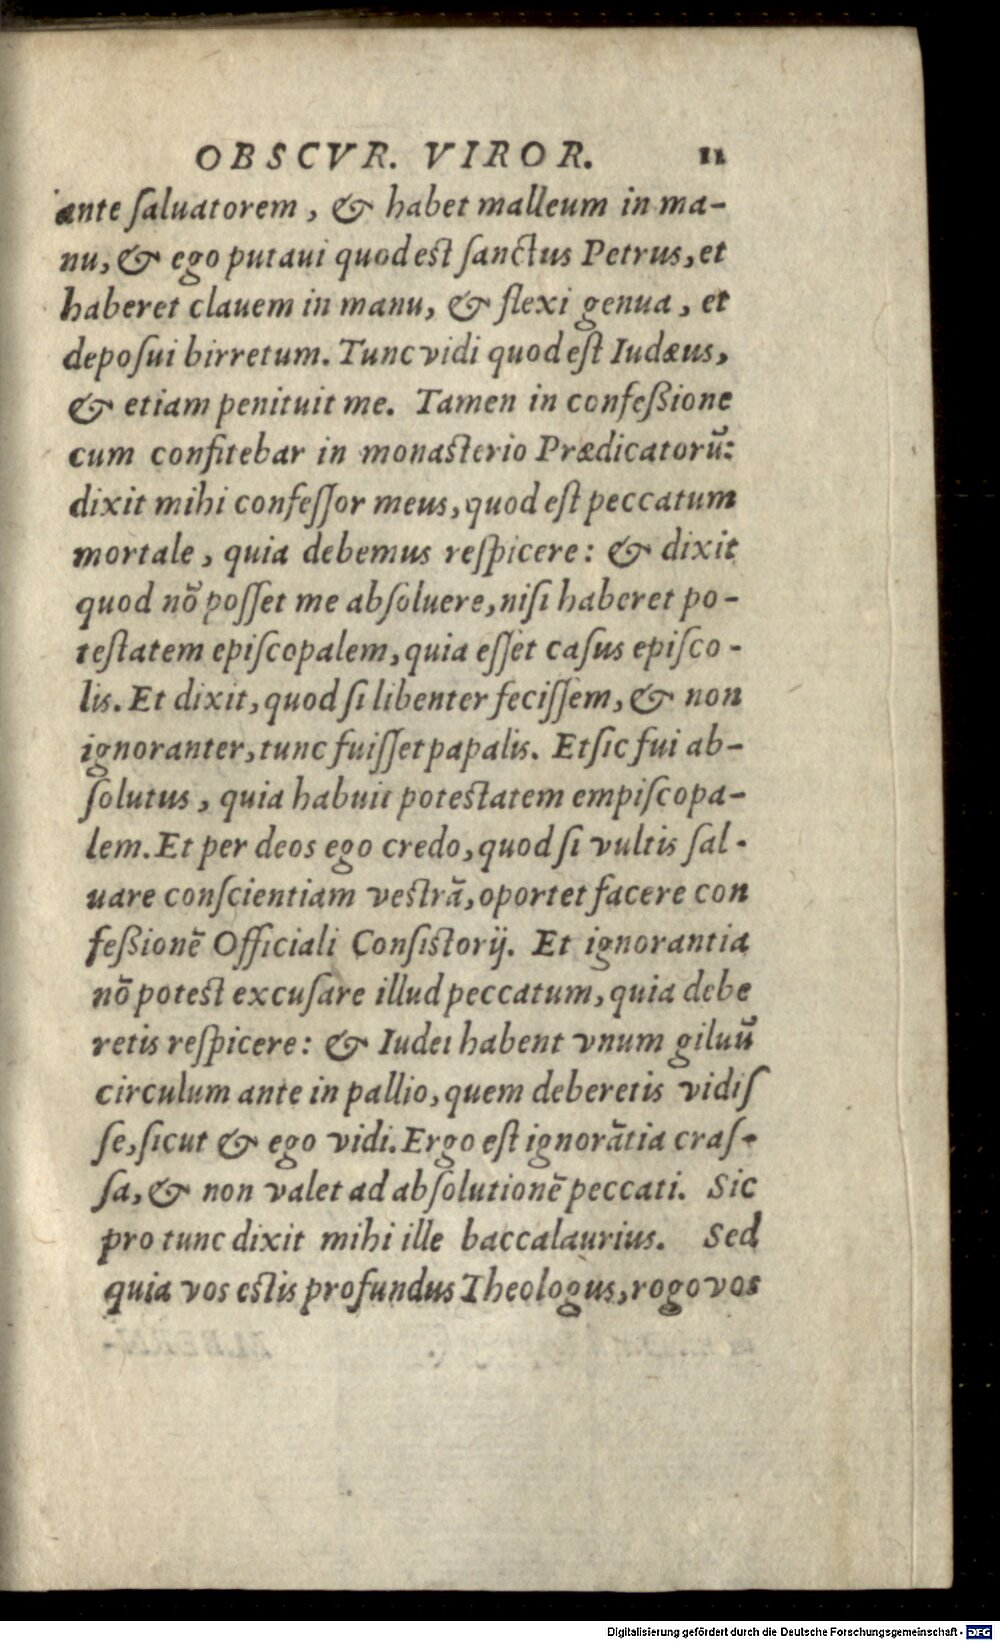 OBSCVR. VIROR. 11
ante ſaluatorem, & habet malleum in ma-
nu, & ego putaui quod est ſanctus Petrus, et
haberet clauem in manu, & flexi genua, et
depoſui birretum. Tunc vidi quod eſt Iudæus,
& etiam penituit me. Tamen in confeßione
cum confitebar in monasterio Prædicatorū:
dixit mihi confeſſor meus, quod eſt peccatum
mortale, quia debemus reſpicere: & dixit
quod nō poſſet me abſoluere, niſi haberet po-
teſtatem epiſcopalem, quia eſſet caſus epiſco-
lis. Et dixit, quod ſi libenter feciſſem, & non
ignoranter, tunc fuiſſet papalis. Et ſic fui ab-
ſolutus, quia habuit potestatem empiſcopa-
lem. Et per deos ego credo, quod ſi vultis ſal-
uare conſcientiam vestrā, oportet facere con
feßionē Officiali Conſistorij. Et ignorantia
nō potest excuſare illud peccatum, quia debe
retis reſpicere: & Iudei habent vnum giluū
circulum ante in pallio, quem deberetis vidiſ
ſe, ſicut & ego vidi. Ergo eſt ignorātia craſ-
ſa, & non valet ad abſolutionē peccati. Sic
pro tunc dixit mihi ille baccalaurius. Sed
quia vos estis profundus Theologus, rogo vos
Digitalisierung gefördert durch die Deutsche Forschungsgemeinschaft - DFG